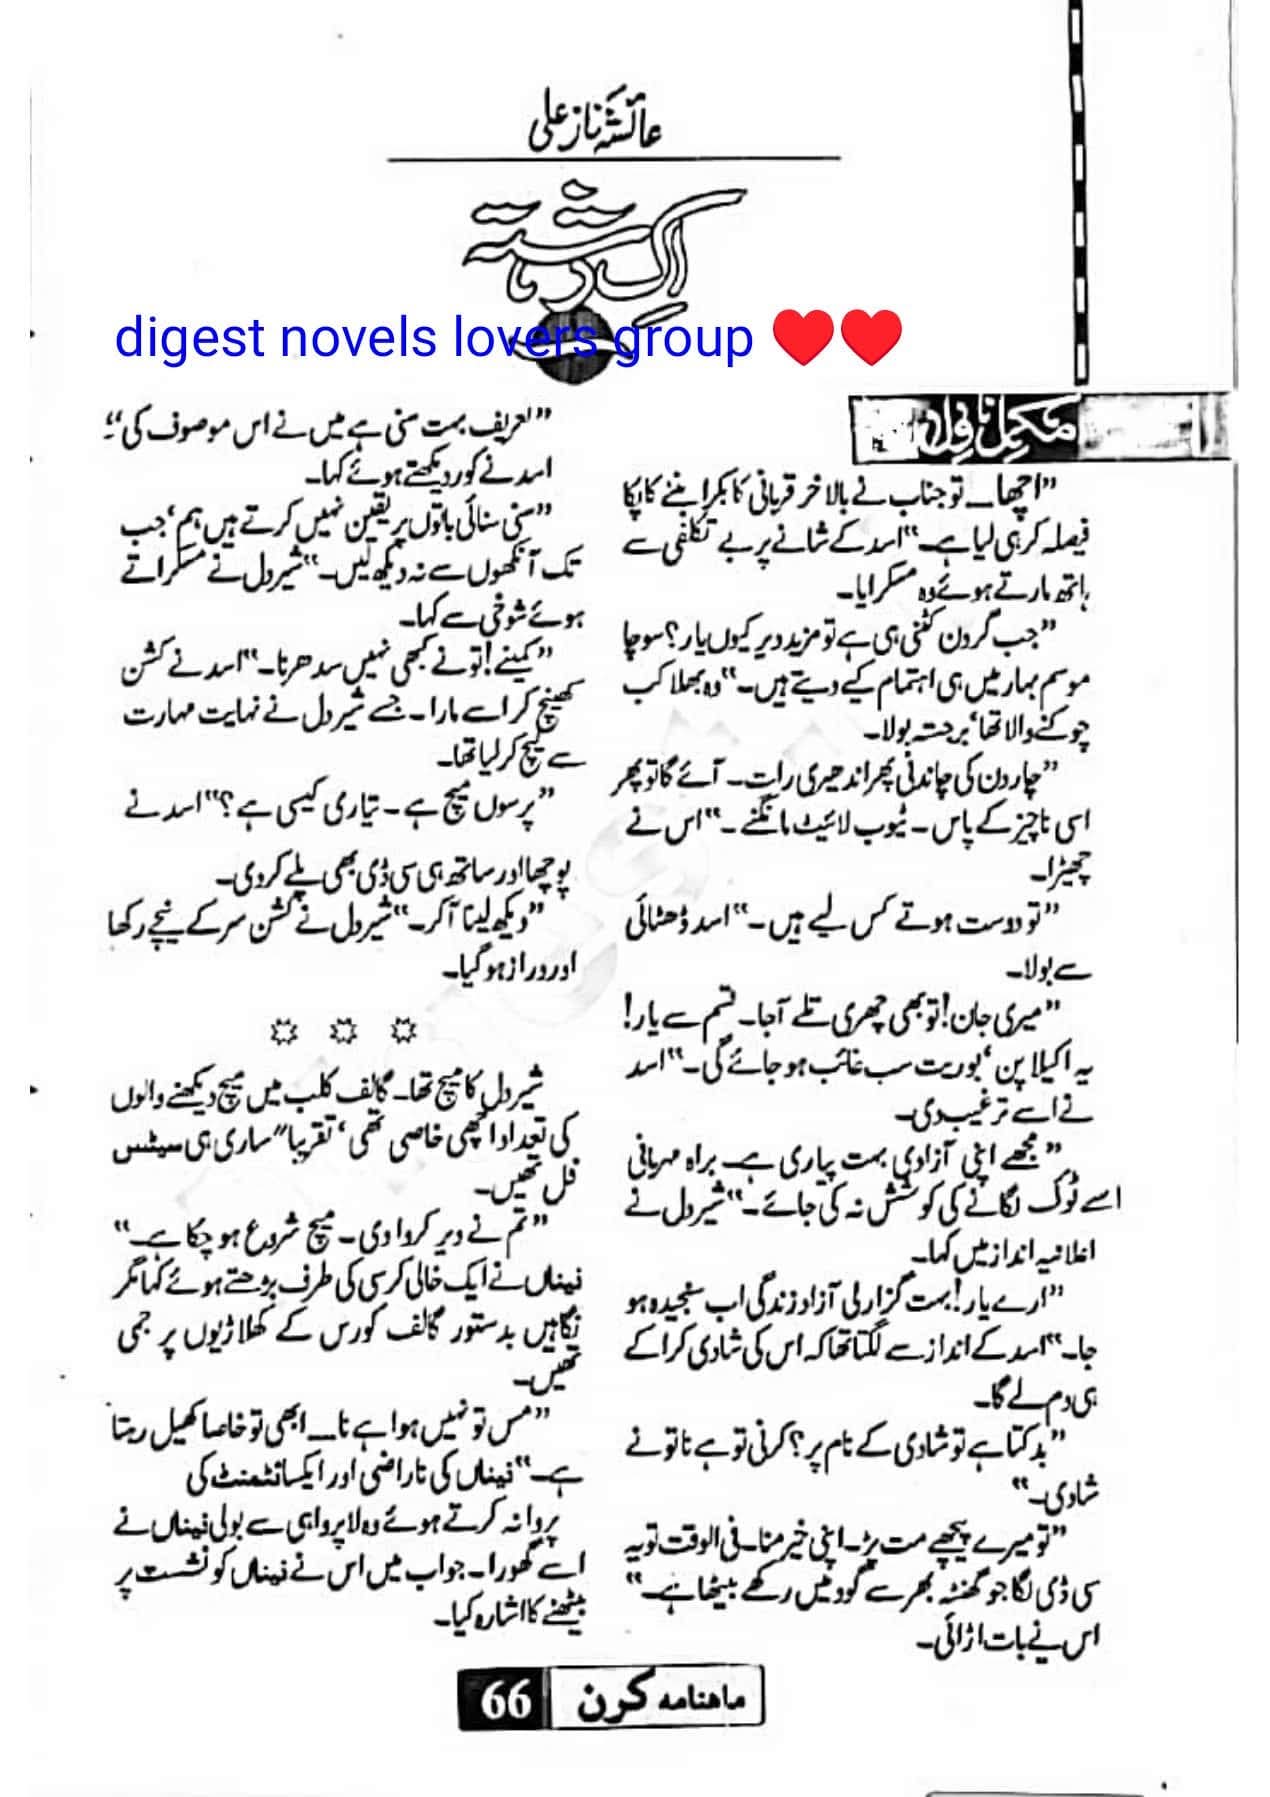 عائشہ ناز علی
اک دشتہ
digest novels lovers group ❤❤
مکمل ناول
”اچھا۔ تو جناب نے بالاخر قربانی کا بکرا بننے کا پکا
فیصلہ کر ہی لیا ہے۔“ اسد کے شانے پر بے تکلفی سے
ہاتھ مارتے ہوئے وہ مسکرایا۔
”جب گردن کٹنی ہی ہے تو مزید دیر کیوں یار؟ سوچا
موسم بہار میں ہی اہتمام کیے دیتے ہیں۔“ وہ بھلا کب
چوکنے والا تھا‘ برجستہ بولا۔
”چار دن کی چاندنی پھر اندھیری رات۔ آئے گا تو پھر
اسی ناچیز کے پاس۔ ٹیوب لائیٹ مانگنے۔“ اس نے
چھیڑا۔
”تو دوست ہوتے کس لیے ہیں۔“ اسد ڈھٹائی
سے بولا۔
”میری جان! تو بھی چھری تلے آجا۔ قسم سے یار!
یہ اکیلا پن‘ بوریت سب غائب ہو جائے گی۔“ اسد
نے اسے ترغیب دی۔
”مجھے اپنی آزادی بہت پیاری ہے۔ براہ مہربانی
اسے ٹوک لگانے کی کوشش نہ کی جائے۔“ شیردل نے
اعلانیہ انداز میں کہا۔
”ارے یار! بہت گزار لی آزاد زندگی اب سنجیدہ ہو
جا۔“ اسد کے انداز سے لگتا تھا کہ اس کی شادی کرا کے
ہی دم لے گا۔
”بدکتا ہے تو شادی کے نام پر؟ کرنی تو ہے نا تو نے
شادی۔“
”تو میرے پیچھے مت پڑ۔ اپنی خیر منا۔ فی الوقت تو یہ
سی ڈی لگا جو گھنٹہ بھر سے گود میں رکھے بیٹھا ہے۔“
اس نے بات اڑائی۔
”تعریف بہت سنی ہے میں نے اس موصوف کی“۔
اسد نے کور دیکھتے ہوئے کہا۔
”سنی سنائی باتوں پر یقین نہیں کرتے ہیں ہم‘ جب
تک آنکھوں سے نہ دیکھ لیں۔“ شیردل نے مسکراتے
ہوئے شوخی سے کہا۔
”کمینے! تو نے کبھی نہیں سدھرنا۔“ اسد نے کشن
کھینچ کر اسے مارا۔ جسے شیردل نے نہایت مہارت
سے کیچ کر لیا تھا۔
”پرسوں میچ ہے۔ تیاری کیسی ہے؟“ اسد نے
پوچھا اور ساتھ ہی سی ڈی بھی پلے کر دی۔
”دیکھ لینا آکر۔“ شیردل نے کشن سر کے نیچے رکھا
اور دراز ہو گیا۔
شیردل کا میچ تھا۔ گالف کلب میں میچ دیکھنے والوں
کی تعداد اچھی خاصی تھی‘ تقریبا″ ساری ہی سیٹس
فل تھیں۔
”تم نے دیر کروا دی۔ میچ شروع ہو چکا ہے۔“
نیناں نے ایک خالی کرسی کی طرف بڑھتے ہوئے کہا مگر
نگاہیں بدستور گالف کورس کے کھلاڑیوں پر جمی
تھیں۔
”مس تو نہیں ہوا ہے نا۔ ابھی تو خاصا کھیل رہتا
ہے۔“ نیناں کی ناراضی اور ایکسائٹمنٹ کی
پروا نہ کرتے ہوئے وہ لاپرواہی سے بولی نیناں نے
اسے گھورا۔ جواب میں اس نے نیناں کو نشست پر
بیٹھنے کا اشارہ کیا۔
ماهنامه کرن 66